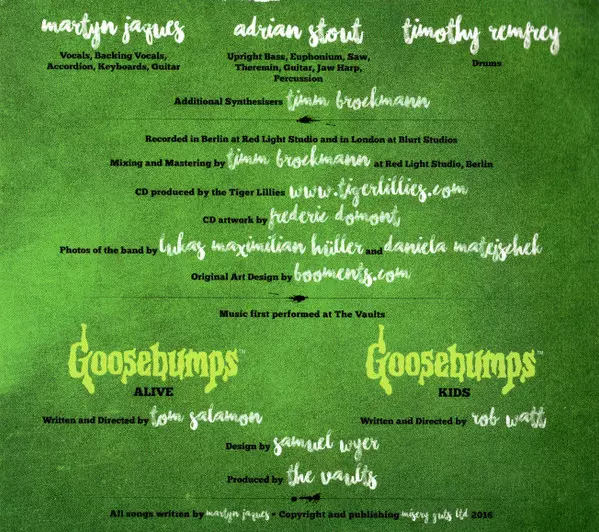 martyn jaques adrian stout timothy remfrey
Vocals, Backing Vocals, Upright Bass, Euphonium, Saw, Drums
Accordion, Keyboards, Guitar Theremin, Guitar, Jaw Harp,
Percussion
Additional Synthesisers timm brockmann
Recorded in Berlin at Red Light Studio and in London at Blurt Studios
Mixing and Mastering by timm brockmann at Red Light Studio, Berlin
CD produced by the Tiger Lillies www.tigerlillies.com
CD artwork by frederic domont
Photos of the band by lukas maximilian hüller and daniela matejschek
Original Art Design by booments.com
Music first performed at The Vaults
Goosebumps™ Goosebumps™
ALIVE KIDS
Written and Directed by tom salamon Written and Directed by rob watt
Design by samuel wyer
Produced by the vaults
All songs written by martyn jaques • Copyright and publishing misery guts ltd 2016